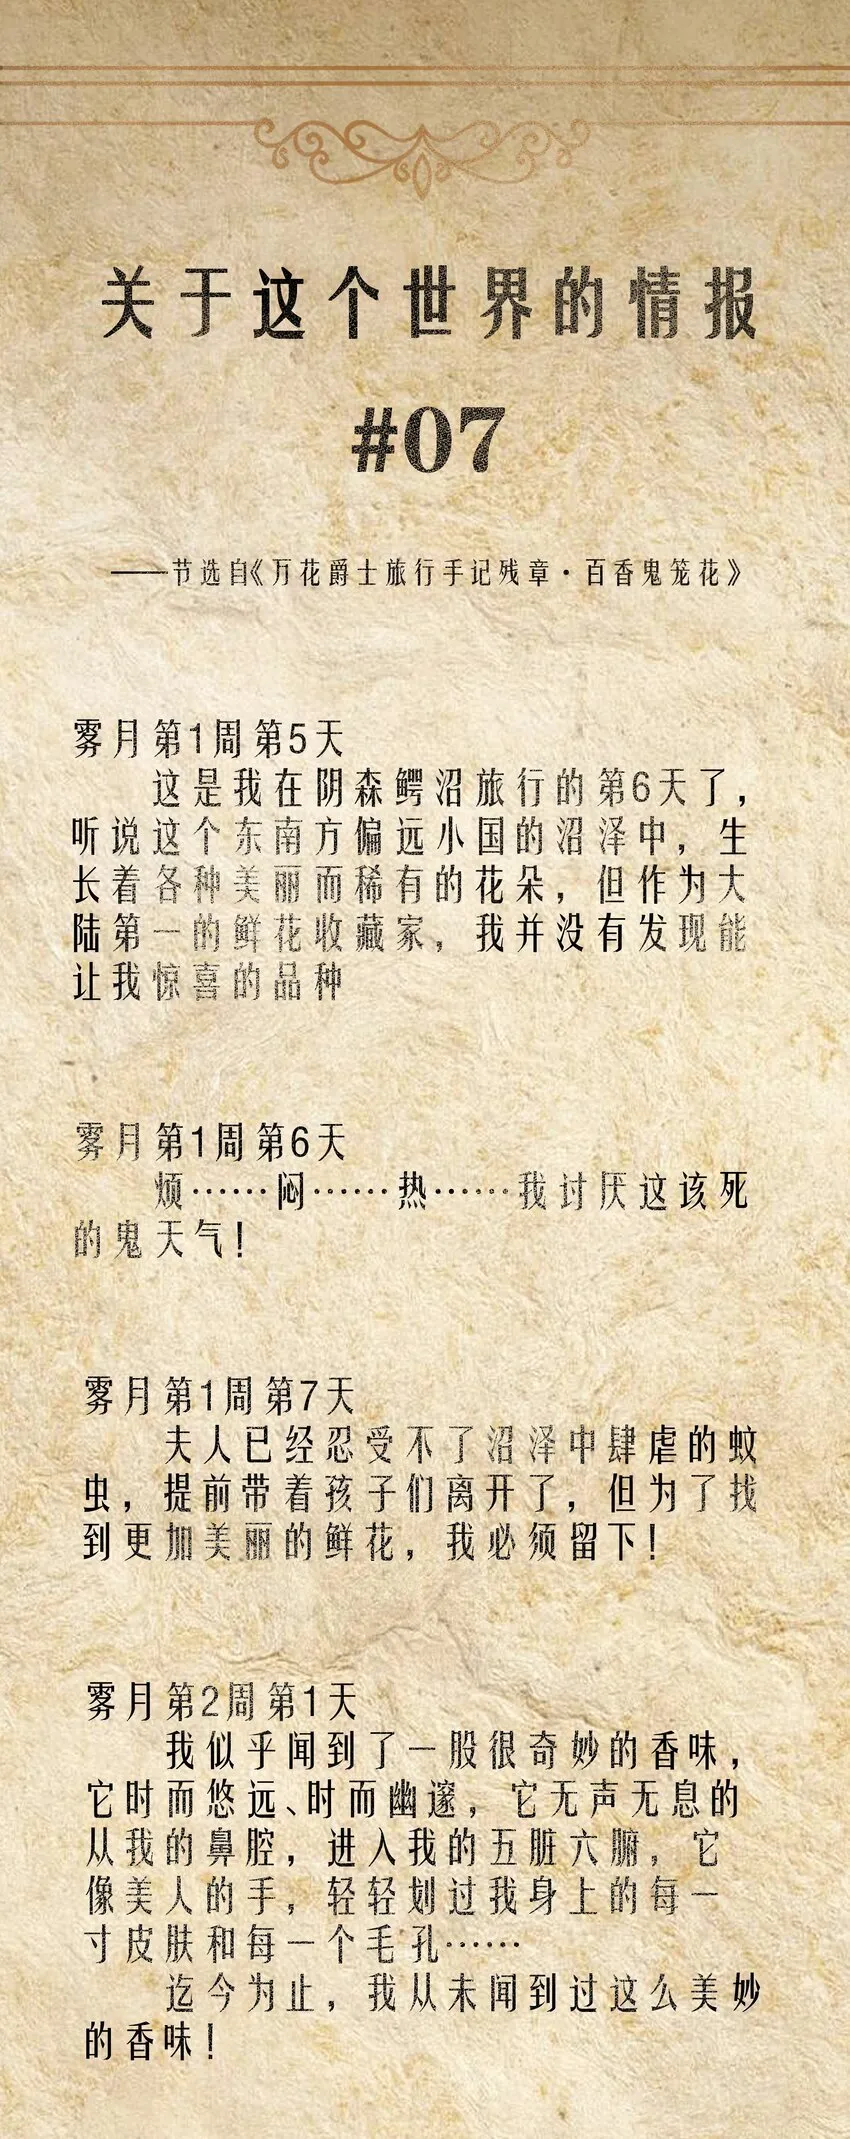 关于这个世界的情报
#07
——节选自《万花爵士旅行手记残章·百香鬼笼花》
雾月第1周第5天
这是我在阴森鳄沼旅行的第6天了，
听说这个东南方偏远小国的沼泽中，生
长着各种美丽而稀有的花朵，但作为大
陆第一的鲜花收藏家，我并没有发现能
让我惊喜的品种
雾月第1周第6天
烦……闷……热……我讨厌这该死
的鬼天气！
雾月第1周第7天
夫人已经忍受不了沼泽中肆虐的蚊
虫，提前带着孩子们离开了，但为了找
到更加美丽的鲜花，我必须留下！
雾月第2周第1天
我似乎闻到了一股很奇妙的香味，
它时而悠远、时而幽邃，它无声无息的
从我的鼻腔，进入我的五脏六腑，它
像美人的手，轻轻划过我身上的每一
寸皮肤和每一个毛孔……
迄今为止，我从未闻到过这么美妙
的香味！